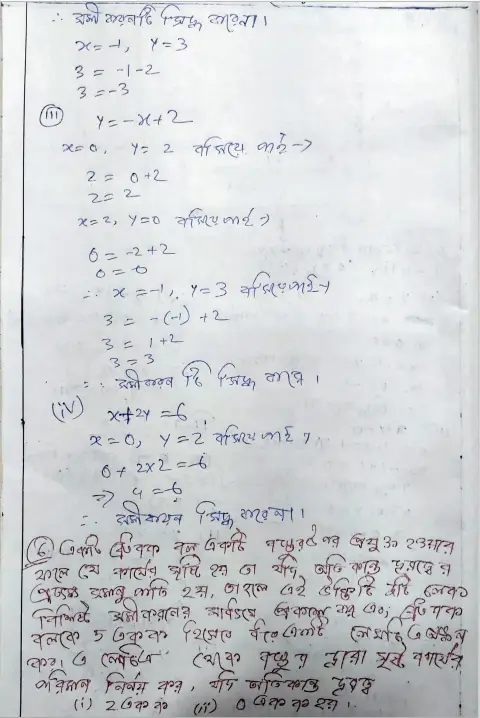 ∴ সমীকরনটি সিদ্ধ করেনা।
x = -1, y = 3
3 = -1-2
3 = -3
(iii) y = -x+2
x = 0, y = 2 বসিয়ে পাই →
2 = 0+2
2 = 2
x = 2, y = 0 বসিয়ে পাই →
0 = -2+2
0 = 0
∴ x = -1, y = 3 বসিয়ে পাই →
3 = -(-1) +2
3 = 1+2
3 = 3
∴ সমীকরন টি সিদ্ধ করে।
(iv) x+2y = 6
x = 0, y = 2 বসিয়ে পাই,
0 + 2x2 = 6
=> 4 = 6
∴ সমীকরন সিদ্ধ করেনা।
(6) একটি ধ্রুবক বল একটি বস্তুর উপর প্রযুক্ত হওয়ার
ফলে যে কার্যের সৃষ্টি হয় তা যদি অতিক্রান্ত দূরত্বের
হয়, তাহলে এই উক্তিটি দুটি চলক
বিশিষ্ট সমীকরণের সাহায্যে প্রকাশ কর এবং ধ্রুবক
বলকে 5 একক হিসেবে ধরে একটি লেখচিত্র অঙ্কন
কর। এ লেখচিত্র থেকে বস্তুর দ্বারা সৃষ্ট কার্যের
পরিমান নির্নয় কর, যদি অতিক্রান্ত দূরত্ব
(i) 2 একক (ii) 0 একক হয়।